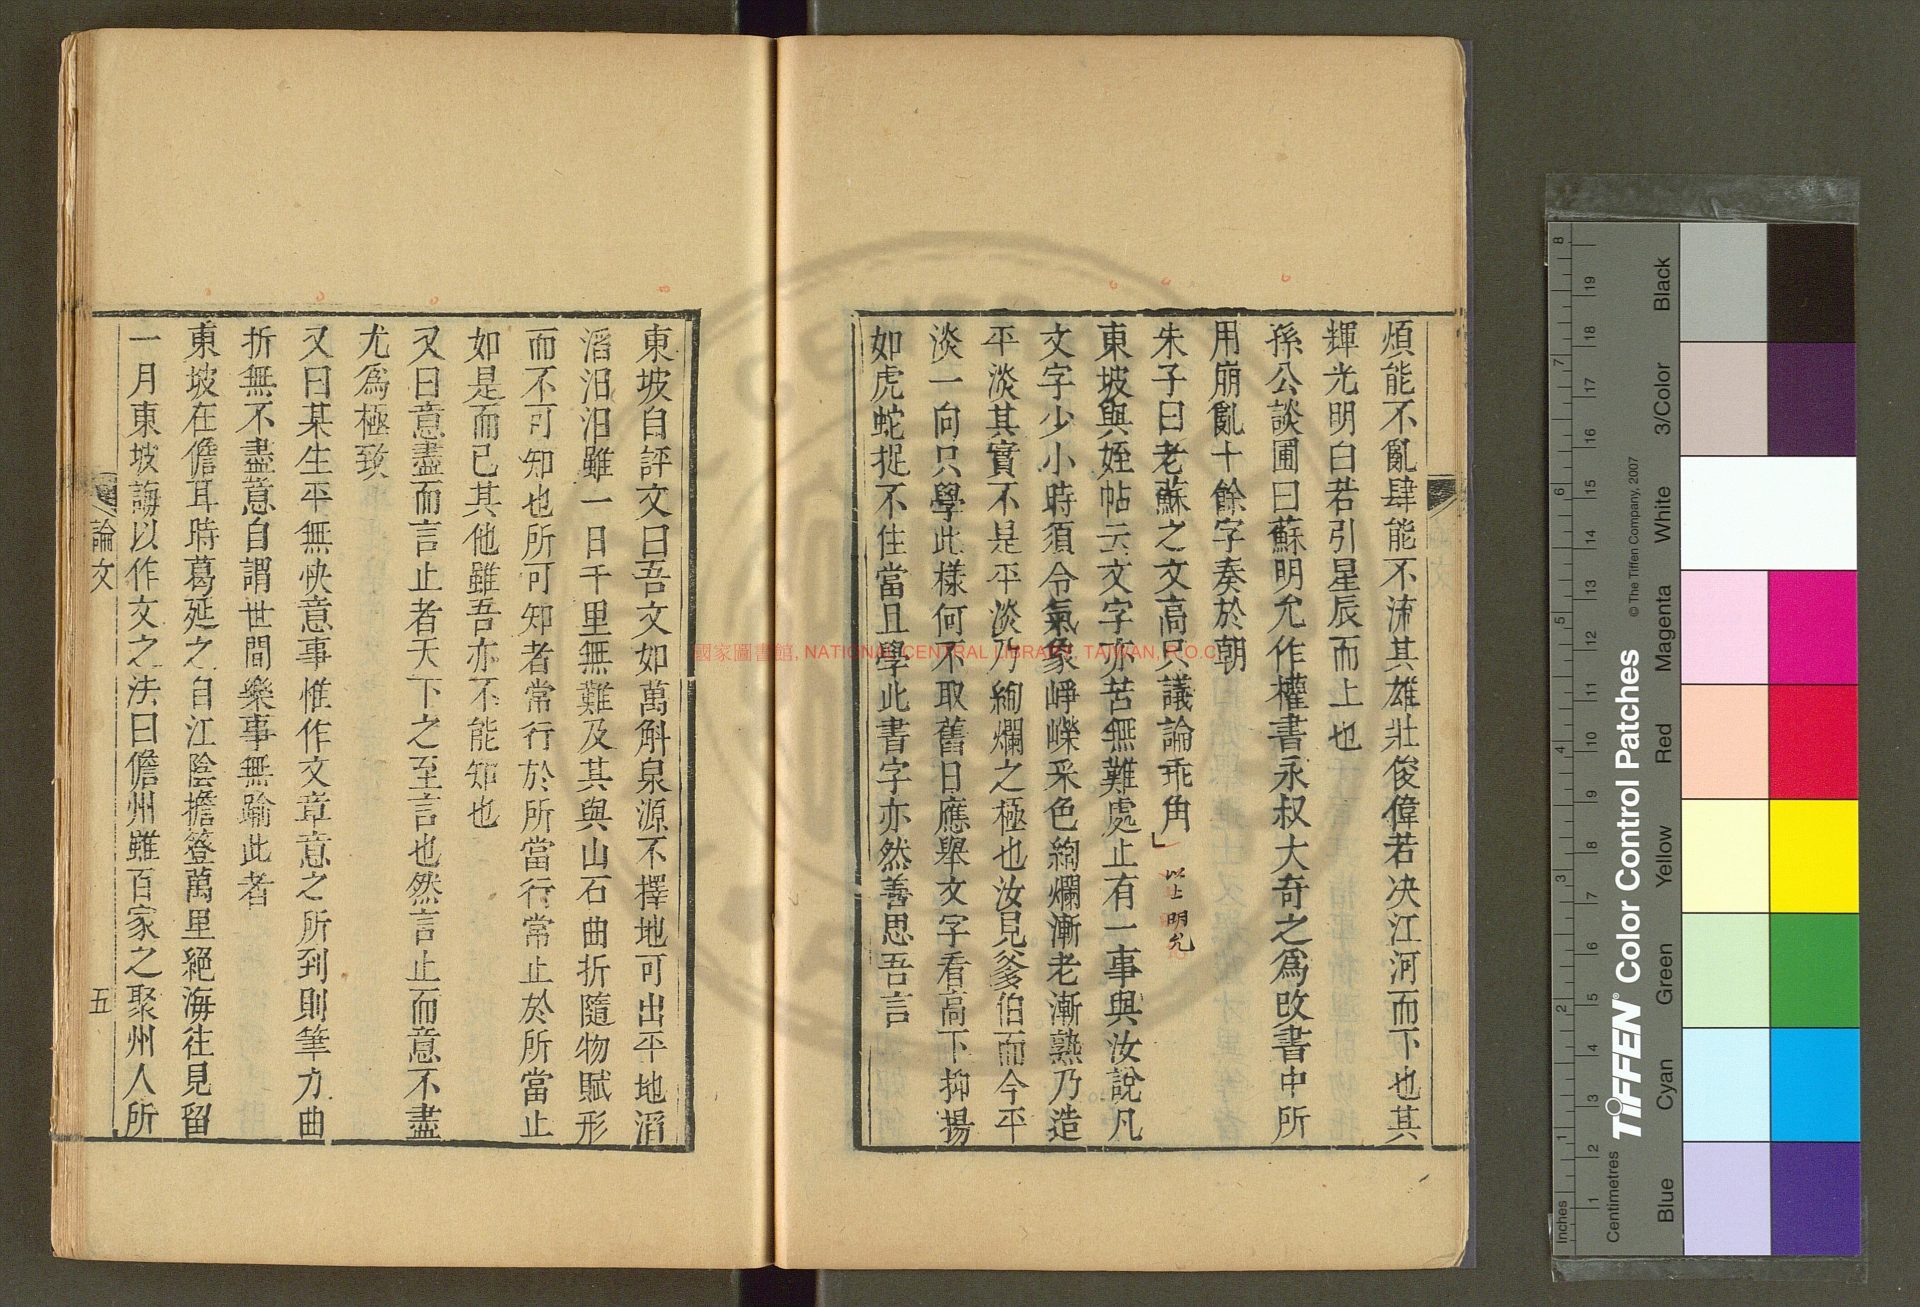 煩能不亂肆能不流其雄壯俊偉若决江河而下也其
輝光明白若引星辰而上也
孫公談圃曰蘇明允作權書永叔大奇之爲改書中所
用崩亂十餘字奏於朝
朱子曰老蘇之文高只議論乖角」以上明允
東坡與姪帖云文字亦苦無難處止有一事與汝說凡
文字少小時須令氣象崢嶸采色絢爛漸老漸熟乃造
平淡其實不是平淡乃絢爛之極也汝見爹伯而今平
淡一向只學此樣何不取舊日應舉文字看高下抑揚
如虎蛇捉不住當且學此書字亦然善思吾言
東坡自評文曰吾文如萬斛泉源不擇地可出平地滔
滔汩汩雖一日千里無難及其與山石曲折隨物賦形
而不可知也所可知者常行於所當行常止於所當止
如是而已其他雖吾亦不能知也
又曰意盡而言止者天下之至言也然言止而意不盡
尤爲極致
又曰某生平無快意事惟作文章意之所到則筆力曲
折無不盡意自謂世間樂事無踰此者
東坡在儋耳時葛延之自江陰擔簦萬里絕海往見留
一月東坡誨以作文之法曰儋州雖百家之聚州人所
論文
五
國家圖書館, NATIONAL CENTRAL LIBRARY, TAIWAN, R.O.C.
Inches
1 2 3 4 5 6 7 8
Centimetres
1 2 3 4 5 6 7 8 9 10 11 12 13 14 15 16 17 18 19
TIFFEN® Color Control Patches
© The Tiffen Company, 2007
Blue
Cyan
Green
Yellow
Red
Magenta
White
3/Color
Black